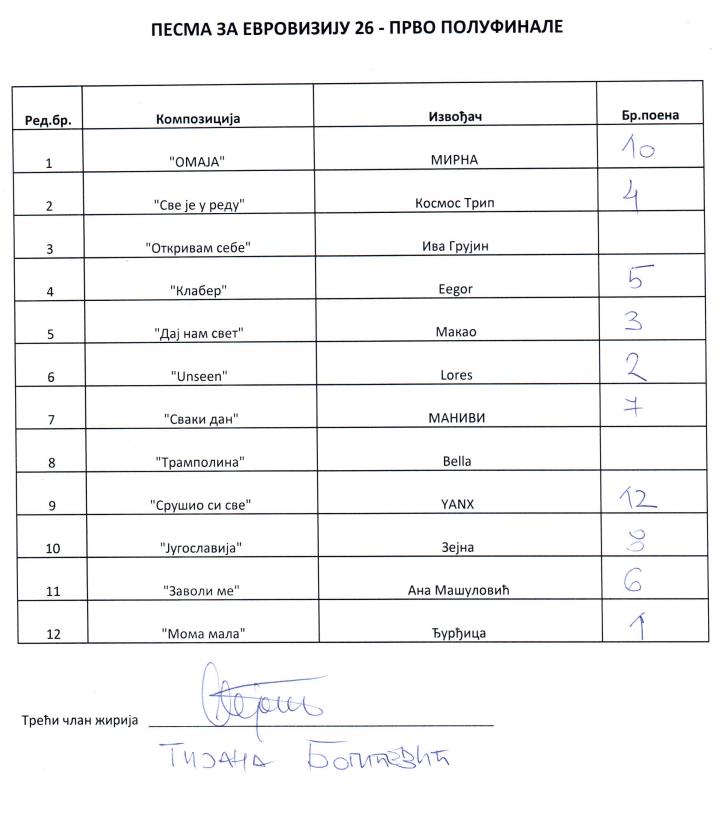 ПЕСМА ЗА ЕВРОВИЗИЈУ 26 - ПРВО ПОЛУФИНАЛЕ
Ред.бр. Композиција Извођач Бр.поена
1 "ОМАЈА" МИРНА 10
2 "Све је у реду" Космос Трип 4
3 "Откривам себе" Ива Грујин
4 "Клабер" Eegor 5
5 "Дај нам свет" Макао 3
6 "Unseen" Lores 2
7 "Сваки дан" МАНИВИ 7
8 "Трамполина" Bella
9 "Срушио си све" YANX 12
10 "Југославија" Зејна 8
11 "Заволи ме" Ана Машуловић 6
12 "Мома мала" Ђурђица 1
Трећи члан жирија
Тијана Богићевић